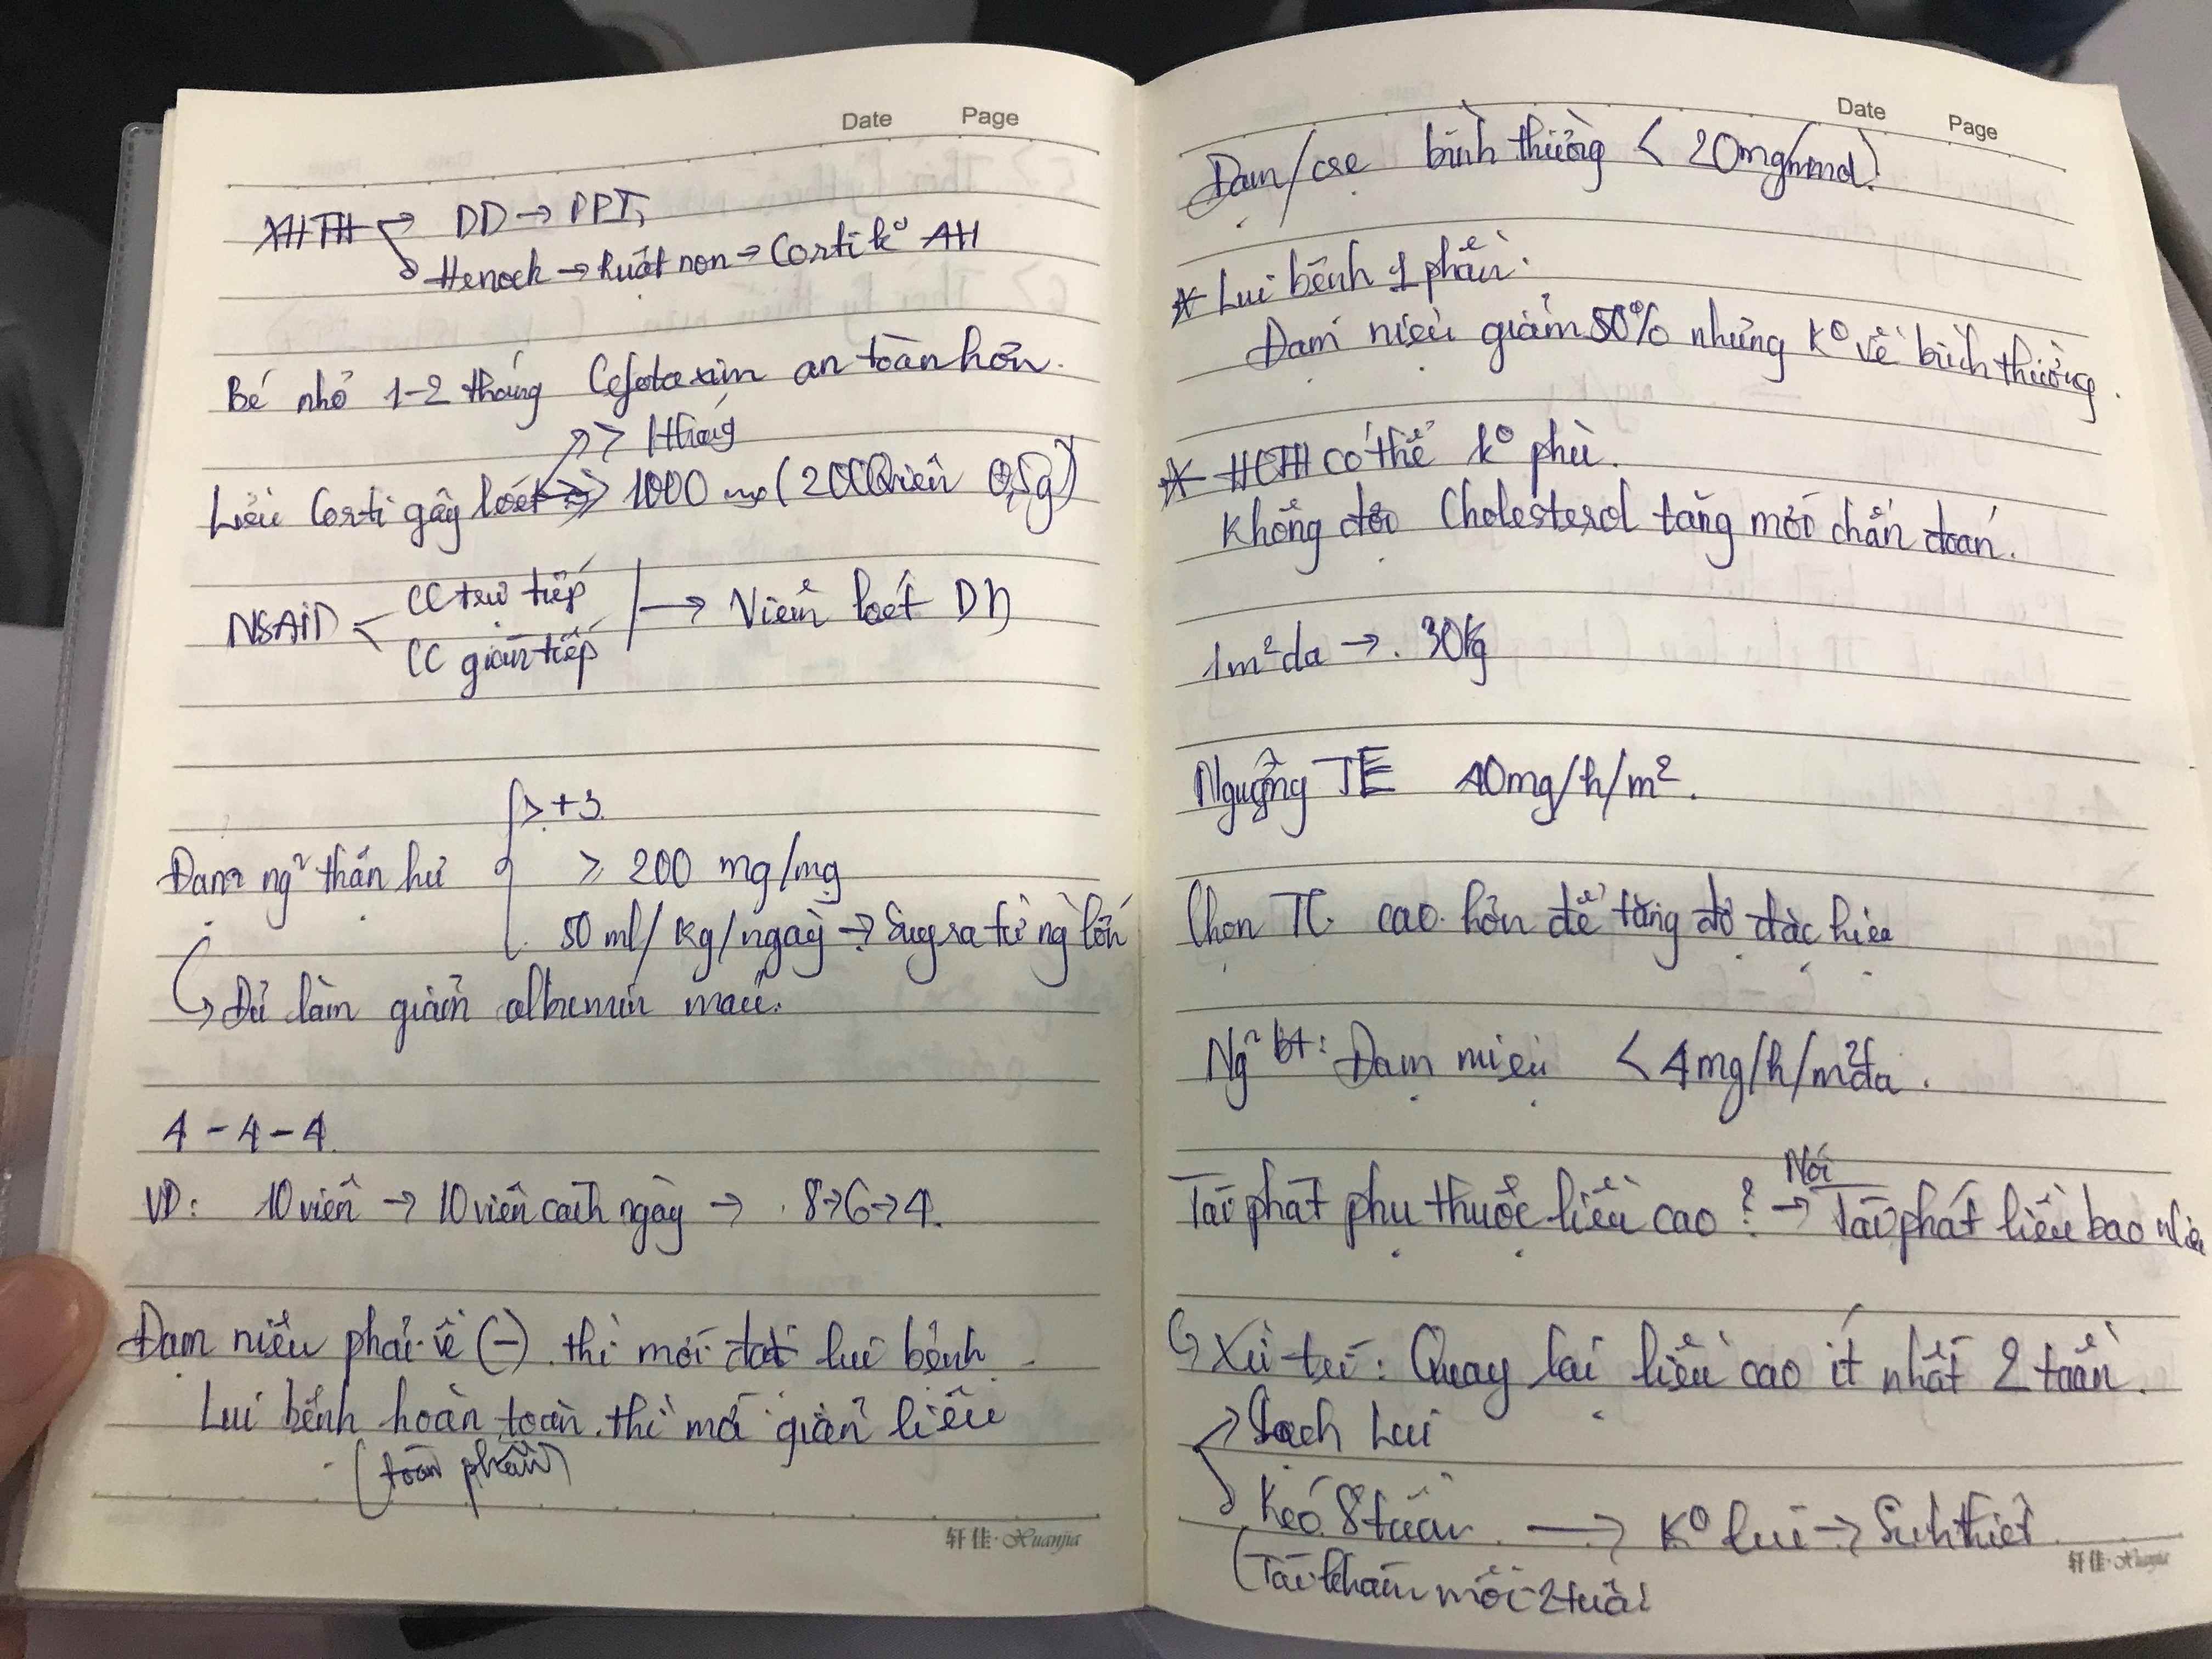 Date Page
XHTH → DD → PPI,
→ Henock → Ruột non → Corti k° AH
Bé nhỏ 1-2 tháng Cefotaxim an toàn hơn.
> 1 tháng
Liều Corti gây loét → > 1000 mg (2000 viên 0,5g)
NSAID < CC trực tiếp
CC gián tiếp → Viêm loét DD
≥ +3
Đạm ng² thận hư ≥ 200 mg/mg
50 ml/kg/ngày → Suy ra từ ng lớn
↳ Đủ làm giảm albumin máu.
4 - 4 - 4.
VD: 10 viên → 10 viên cách ngày → 8→6→4.
Đạm niệu phải về (-) thì mới đạt lui bệnh
Lui bệnh hoàn toàn thì mới giảm liều
(toàn phần)
轩佳·Xuanjia
Date Page
Đạm/cre bình thường < 20mg/mmol
* Lui bệnh 1 phần:
Đạm niệu giảm 50% nhưng k° về bình thường.
* HCTH có thể k° phù.
Không đợi Cholesterol tăng mới chẩn đoán.
1m² da → 30kg
Ngưỡng TE 40mg/h/m².
Chọn TC cao hơn để tăng độ đặc hiệu
Ng² bt: Đạm niệu < 4mg/h/m² da.
Nói
Tái phát phụ thuộc liều cao ? → Tái phát liều bao nhiêu
↳ Xử trí: Quay lại liều cao ít nhất 2 tuần.
→ Sạch Lui
→ Kéo 8 tuần → K° lui → Sinh thiết
(Tái khám mỗi 2 tuần
轩佳·Xuanjia